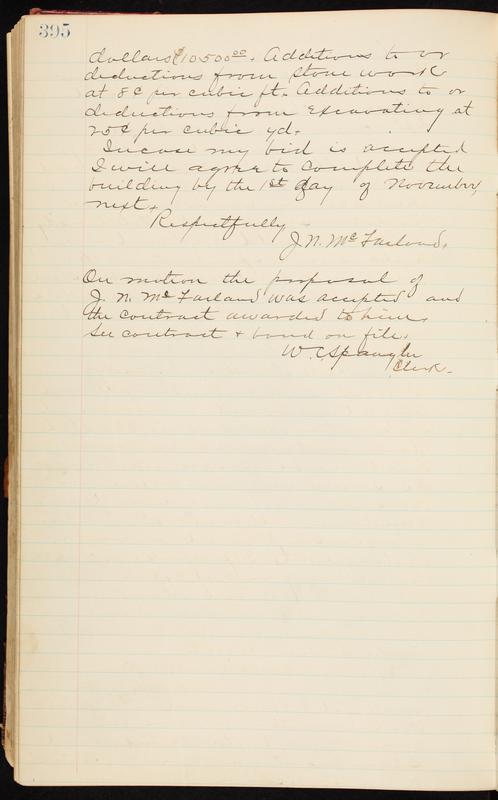 395
dollars $10500.00. Additions to or
deductions from stone work
at 8¢ per cubic ft. Additions to or
deductions from Excavating at
25¢ per cubic yd.
Incase my bid is accepted
I will agree to complete the
building by the 1st day of November,
next.
Respectfully
J. N. McFarland.
On motion the proposal of
J. N. McFarland was accepted and
the contract awarded to him.
See contract + bond on file.
W. C. Spangler
Clerk.